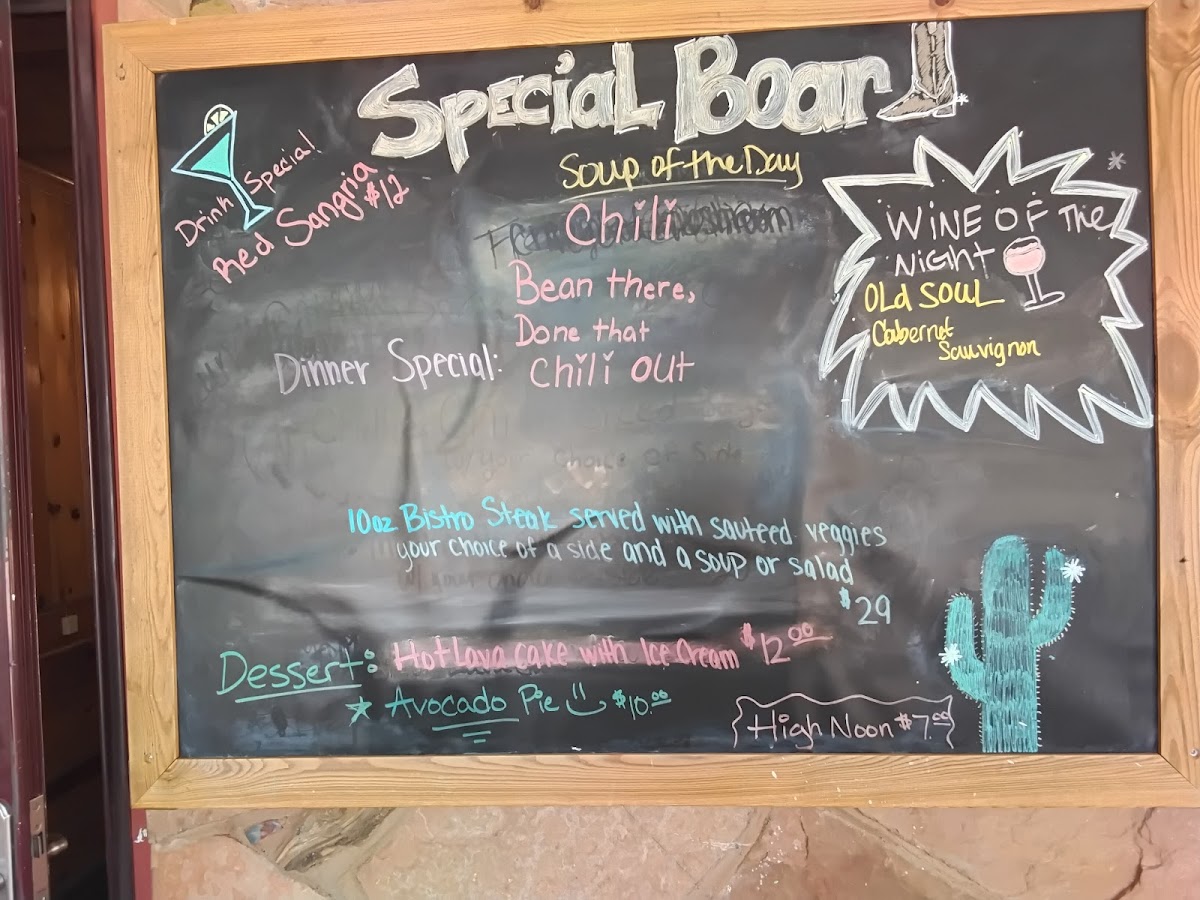 Special Board
Drink Special
Red Sangria
$12
Soup of the Day
Chili
Bean there,
Done that
Chili Out
WINE OF The
NiGHT
OLd SOUL
Cabernet
Sauvignon
Dinner Special:
10oz Bistro Steak served with sauteed veggies
your choice of a side and a soup or salad
$29
Dessert: Hot Lava cake with Ice Cream $12.00
Avocado Pie $10.00
High Noon $7.00